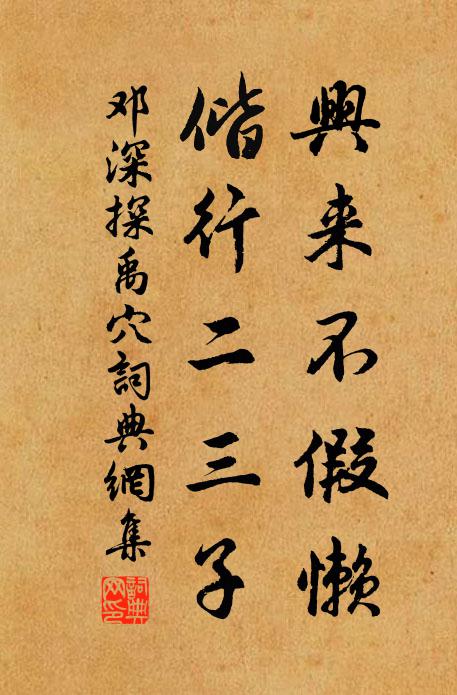 興来不假懶
偕行二三子
邓深探禹穴詞典網集
詞典网印